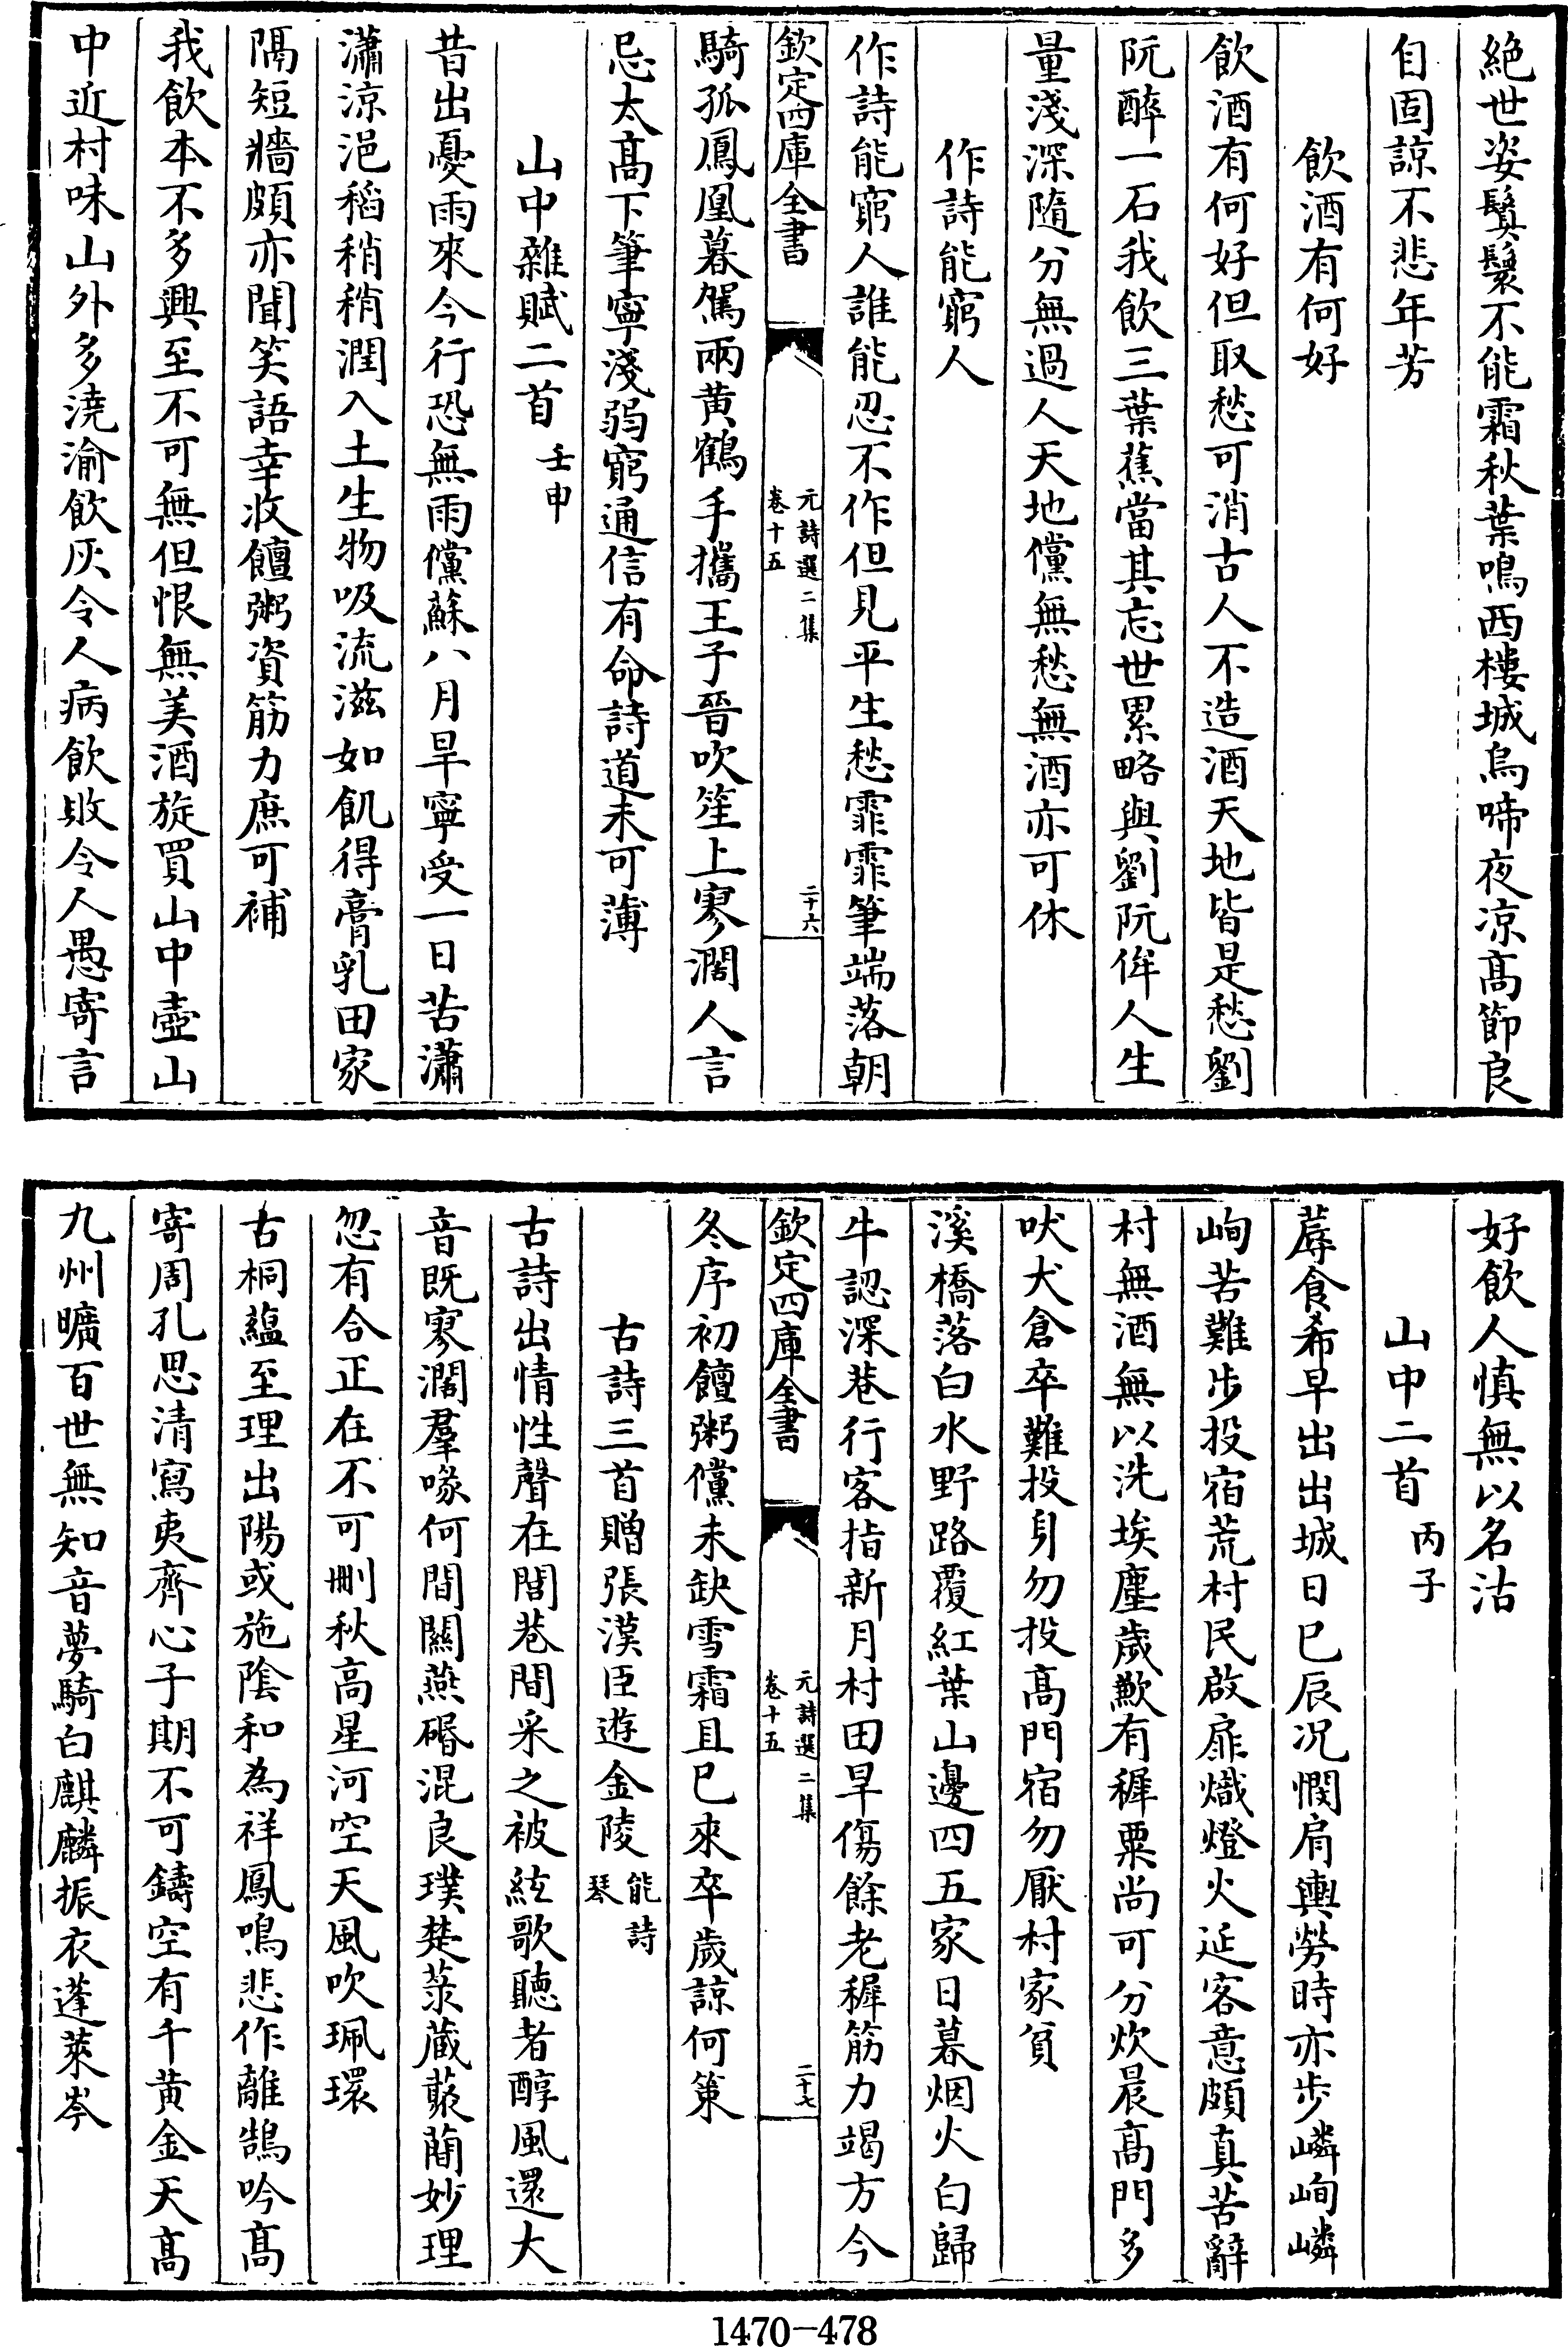 絶世姿鬒鬟不能霜秋葉鳴西樓城烏啼夜凉高節良
自固諒不悲年芳
飲酒有何好
飲酒有何好但取愁可消古人不造酒天地皆是愁劉
阮醉一石我飲三葉蕉當其忘世累略與劉阮侔人生
量淺深隨分無過人天地儻無愁無酒亦可休
作詩能窮人
作詩能窮人誰能忍不作但見平生愁霏霏筆端落朝
欽定四庫全書
元詩選二集
卷十五
二十六
騎孤鳳凰暮駕兩黄鶴手攜王子晉吹笙上寥濶人言
忌太高下筆寧淺弱窮通信有命詩道未可薄
山中雜賦二首壬申
昔出憂雨來今行恐無雨儻蘇八月旱寧受一日苦瀟
瀟涼浥稻稍稍潤入土生物吸流滋如飢得膏乳田家
隔短牆頗亦聞笑語幸收饘粥資筋力庶可補
我飲本不多興至不可無但恨無美酒旋買山中壺山
中近村味山外多澆渝飲灰令人病飲敗令人愚寄言
好飲人慎無以名沽
山中二首丙子
蓐食希早出出城日已辰况憫肩輿勞時亦步嶙峋嶙
峋苦難步投宿荒村民啟扉熾燈火延客意頗真苦辭
村無酒無以洗埃塵歲歉有穉粟尚可分炊晨高門多
吠犬倉卒難投身勿投高門宿勿厭村家貧
溪橋落白水野路覆紅葉山邊四五家日暮烟火白歸
牛認深巷行客指新月村田旱傷餘老穉筋力竭方今
欽定四庫全書
元詩選二集
卷十五
二十七
冬序初饘粥儻未缺雪霜且已來卒歲諒何策
古詩三首贈張漢臣遊金陵能詩琴
古詩出情性聲在閭巷間采之被絃歌聽者醇風還大
音既寥濶羣喙何間關燕磻混良璞楚菉蔵藂蕳妙理
忽有合正在不可刪秋高星河空天風吹珮環
古桐藴至理出陽或施陰和為祥鳳鳴悲作離鵠吟高
寄周孔思清寫夷齊心子期不可鑄空有千黄金天高
九州曠百世無知音夢騎白麒麟振衣蓬萊岑
1470-478